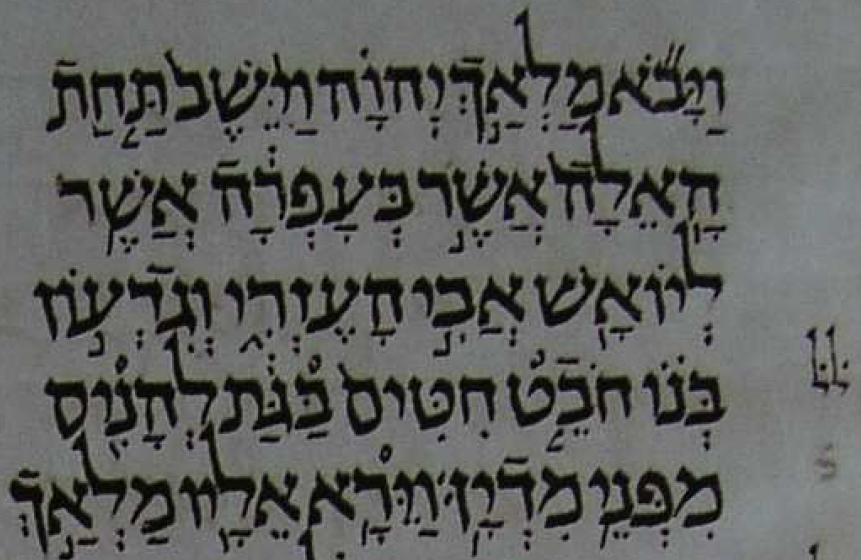 וַיָּבֹא מַלְאַךְ יְהוָה וַיֵּשֶׁב תַּחַת
הָאֵלָה אֲשֶׁר בְּעָפְרָה אֲשֶׁר
לְיוֹאָשׁ אֲבִי הָעֶזְרִי וְגִדְעוֹן
בְּנוֹ חֹבֵט חִטִּים בַּגַּת לְהָנִיס
מִפְּנֵי מִדְיָן׃ וַיֵּרָא אֵלָיו מַלְאַךְ